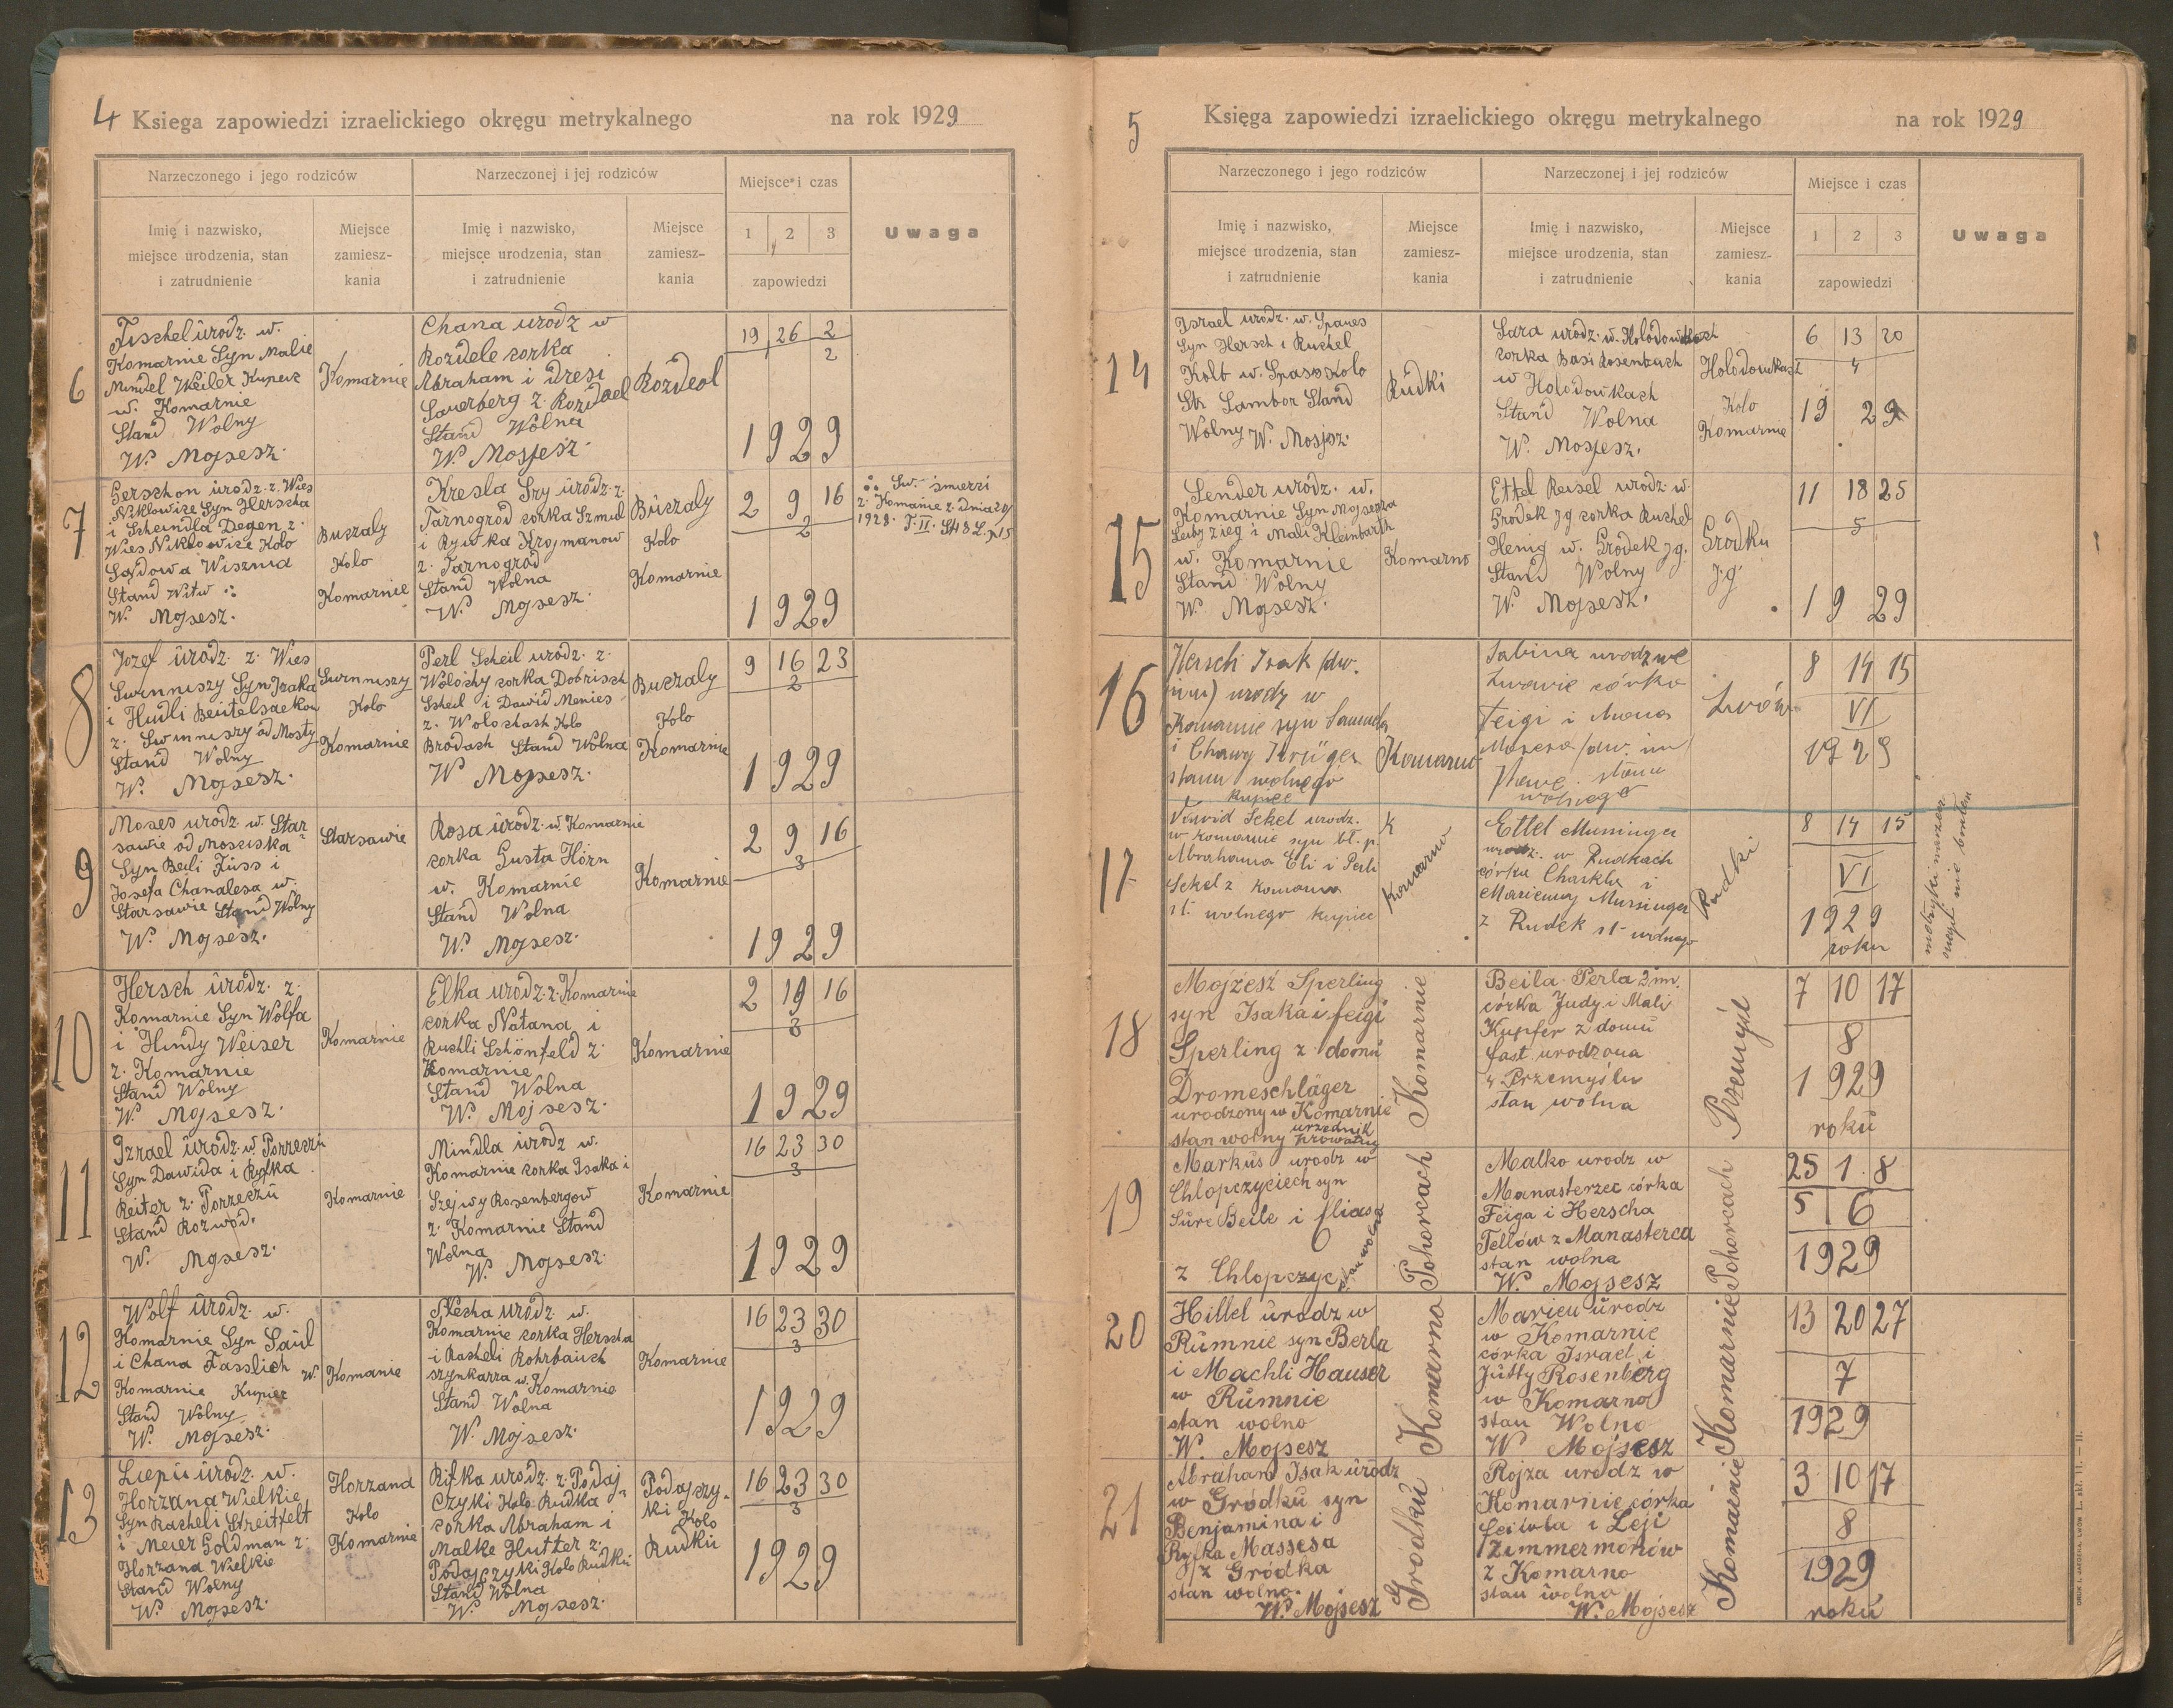 4 Ksiega zapowiedzi izraelickiego okręgu metrykalnego na rok 1929
Narzeczonego i jego rodziców
Narzeczonej i jej rodziców
Miejsce i czas
Uwaga
Imię i nazwisko,
miejsce urodzenia, stan
i zatrudnienie
Miejsce
zamiesz-
kania
Imię i nazwisko,
miejsce urodzenia, stan
i zatrudnienie
Miejsce
zamiesz-
kania
1 2 3
zapowiedzi
6
Fischel urodz. w.
Komarnie Syn Malie
Mindel Weiler Kupiec
w. Komarnie
Stand Wolny
W. Mojsesz.
Komarnie
Chana urodz w
Rozdele corka
Abraham i Dresi
Sauerberg z. Rozdoel
Stand Wolna
W. Mosjesz.
Rozdeol
19 26 2
2
1929
7
Gerschon urodz. z. Wies
Niklowice Syn Herscha
i Scheindla Degen z.
Wies Niklowice Kolo
Sądowa Wisznia
Stand Witw
W. Mojsesz.
Buczaly
Kolo
Komarnie
Kresla Sry urodz. z.
Tarnogrod corka Szmul
i Rywka Krojmanow
z. Tarnogrod
Stand Wolna
W. Mojsesz.
Buczaly
Kolo
Komarnie
2 9 16
2
1929
Sw. smierzi
z. Komanie z. dnia 20/
1928. T. II. St 8 L. p 15
8
Jozef urodz. z. Wies
Suszn Syn Izaka
i Hudli Beitelsackon
od Mosty
Stand Wolny
W. Mojsesz.
Kolo
Komarnie
Perl Scheil urodz. z.
Woloschy corka Dobrisch
Scheil i Dawid Menies
z. Woloschach Kolo
Brodach Stand Wolna
W Mojsesz.
Buczaly
Kolo
Komarnie
9 16 23
2
1929
9
Moses urodz. w. Star
sawie od Mosciska
Syn Beili Füss i
Josefa Chanalesa w.
Starsawie Stand Wolny
W. Mojsesz.
Starsawie
Rosa urodz. w. Komarnie
corka Gusta Hörn
w. Komarnie
Stand Wolna
W. Mojsesz.
Komarnie
2 9 16
3
1929
10
Hersch urodz. z.
Komarnie Syn Wolfa
i Hindy Weiser
z. Komarnie
Stand Wolny
W. Mojsesz.
Komarnie
Elka urodz. z. Komarnie
corka Natana i
Ruchli Schönfeld z.
Komarnie
Stand Wolna
W. Mojsesz.
Komarnie
2 19 16
3
1929
11
Izrael urodz. w. Porzeczu
Syn Dawida i Ryfka
Reiter z. Porzeczu
Stand Rozwod.
W. Mojsesz.
Komarnie
Mindla urodz w.
Komarnie corka Isaka i
Szejwy Rosenbergow
z. Komarnie Stand
Wolna
W. Mojsesz.
Komarnie
16 23 30
3
1929
12
Wolf urodz. w.
Komarnie Syn Saul
i Chana Fasslich w.
Komarnie Kupiec
Stand Wolny
W. Mojsesz.
Komanie
Necha urodz. w.
Komarnie corka Herscha
i Racheli Rohrbauch
szynkarza w. Komarnie
Stand Wolna
W. Mojsesz.
Komarnie
16 23 30
3
1929
13
urodz. w.
Horzana Wielkie
Syn Racheli Streitfelt
i Meier Goldman z.
Horzana Wielkie
Stand Wolny
W. Mojsesz.
Horzana
Kolo
Komarnie
Rifka urodz. z. Podaj
czyki Kolo Rudka
corka Abraham i
Malke Hutter z.
Podajczyki Kolo Rudki
Stand Wolna
W. Mojsesz.
Podajczy
ki Kolo
Rudki
16 23 30
3
1929
5 Księga zapowiedzi izraelickiego okręgu metrykalnego na rok 1929
Narzeczonego i jego rodziców
Narzeczonej i jej rodziców
Miejsce i czas
Uwaga
Imię i nazwisko,
miejsce urodzenia, stan
i zatrudnienie
Miejsce
zamiesz-
kania
Imię i nazwisko,
miejsce urodzenia, stan
i zatrudnienie
Miejsce
zamiesz-
kania
1 2 3
zapowiedzi
14
Israel urodz. w. Spaues
Syn Hersch i Ruchel
Kolb w. Spass Kolo
Str Sambor Stand
Wolny W. Mosjsz.
Rudki
Sara urodz. w. Holodowkach
corka Basi Rosenbusch
w Holodowkach
Stand Wolna
W. Mosjesz.
Holodowkasz
Kolo
Komarnie
6 13 20
4
19 29
15
Sender urodz. w.
Komarnie Syn Mojsesza
Leiby Zieg i Mali Kleinbarth
w. Komarnie
Stand Wolny
W. Mojsesz.
Komarno
Ettel Reisel urodz. w.
Grodek Jg corka Ruchel
Henig w. Grodek Jg.
Stand Wolny
W. Mojsesz.
Grodku
J.g.
11 18 25
5
19 29
16
Hersch Isak (dw.
im) urodz w
Komarnie syn Samuela
i Chawy Krüger
stanu wolnego
kupiec
Komarno
Sabina urodz we
Lwowie córka
Feigi i
Mojzesa (dw. im)
stanu
wolnego
Lwów
8 14 15
VI
1929
17
Dawid Sekel urodz.
w Komarnie syn bł. p.
Abrahama Eli i Perli
Sekel z Komarna
st. wolnego kupiec
K
Komarno
Ettel Muninger
urodz. w Rudkach
córka Charkla i
z Rudek st. wolnego
Rudki
8 14 15
VI
1929
roku
18
Mojżesz Sperling
syn Isaka i feigi
Sperling z domu
Dromeschläger
urodzony w Komarnie
stan wolny urzednik
prowatny
Komarnie
Beila Perla 2 im.
córka Judy i Mali
Kupfer z domu
fast urodzona
w Przemyślu
stan wolna
Przemyśl
7 10 17
8
1929
roku
19
Markus urodz w
Chlopczyciech syn
Sure Beile i Eliasa
z Chlopczyc stan wolny
Pohorcach
Malko urodz w
Manasterzec córka
Feiga i Herscha
Fellów z Manasterca
stan wolna
W. Mojsesz
Pohorcach
25 1 8
5 6
1929
20
Hillel urodz w
Rumnie syn Berla
i Machli Hauser
w Rumnie
stan wolno
W. Mojsesz
Komarna
Mariem urodz
w Komarnie
córka Israel i
Jütty Rosenberg
w Komarno
stan Wolno
W Mojsesz
Komarnie
13 20 27
7
1929
21
Abraham Isak urodz
w Gródku syn
Benjamina i
Ryfka Massesa
z Gródka
stan wolno.
W. Mojsesz
Gródku
Rojza urodz w
Komarnie córka
feiwla i Leji
Zimmermonów
z Komarno
stan wolno
W. Mojsesz
Komarnie
3 10 17
8
1929
roku